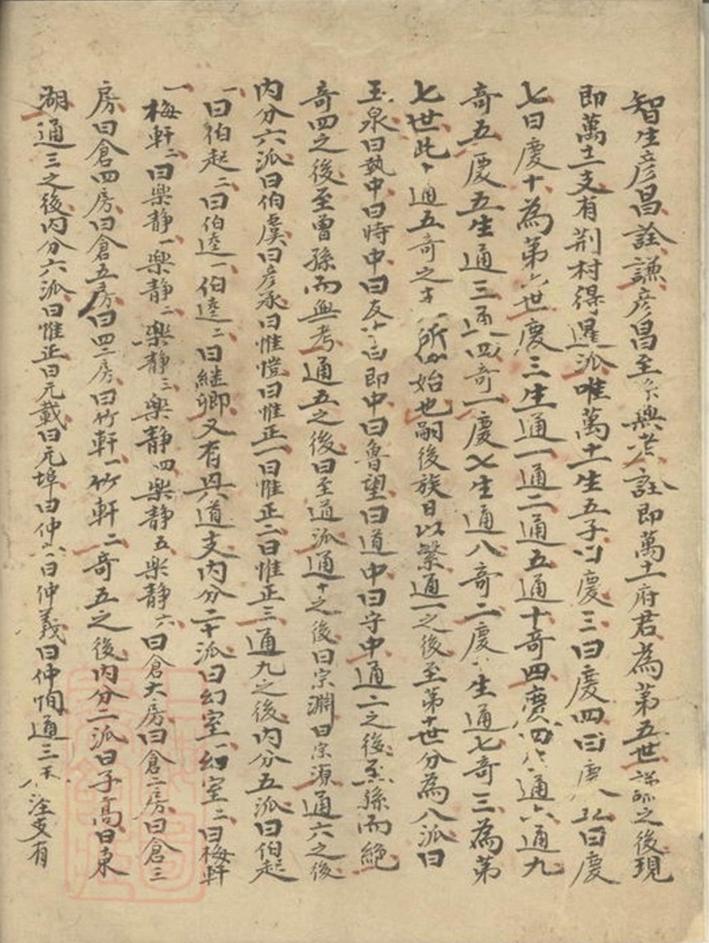 智生彦昌詮謙彦昌至無考詮即萬十府君為第五世之後現
即萬十一支有荆村得暹派唯萬十一生五子曰慶三曰慶四曰慶八曰慶
七曰慶十為第六世慶三生通一通二通五通十奇四慶四生通六通九
奇五慶五生通三通四奇一慶七生通八奇二慶生通七奇三為第
七世此通五奇之所始也嗣後族日以繁通一之後至第十世分為八派曰
玉泉曰執中曰時中曰友曰即中曰魯望曰道中曰守中通二之後至孫而絶
奇四之後至曾孫而無考通五之後曰至道派通十之後曰宗淵曰宗源通六之後
内分六派曰伯虞曰彦承曰惟愷曰惟正一曰惟正二曰惟正三通九之後内分五派曰伯起
一曰伯起二曰伯逵一伯逵二曰継卿又有與道支内分二十派曰幻室一幻室二曰梅軒
一梅軒二曰樂静一樂静二樂静三樂静四樂静五樂静六曰倉大房曰倉二房曰倉三
房曰倉四房曰倉五房曰四二房曰竹軒一竹軒二奇五之後内分二派曰子高曰東
湖通三之後内分六派曰惟正曰元載曰元埠曰仲曰仲義曰仲恂通三注支有